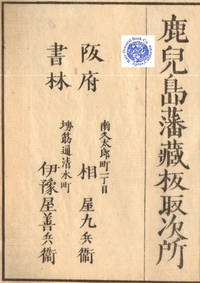 鹿兒島藩藏板取次所
阪府
書林
南久太郎町一丁目
相屋九兵衞
堺筋通清水町
伊豫屋善兵衞